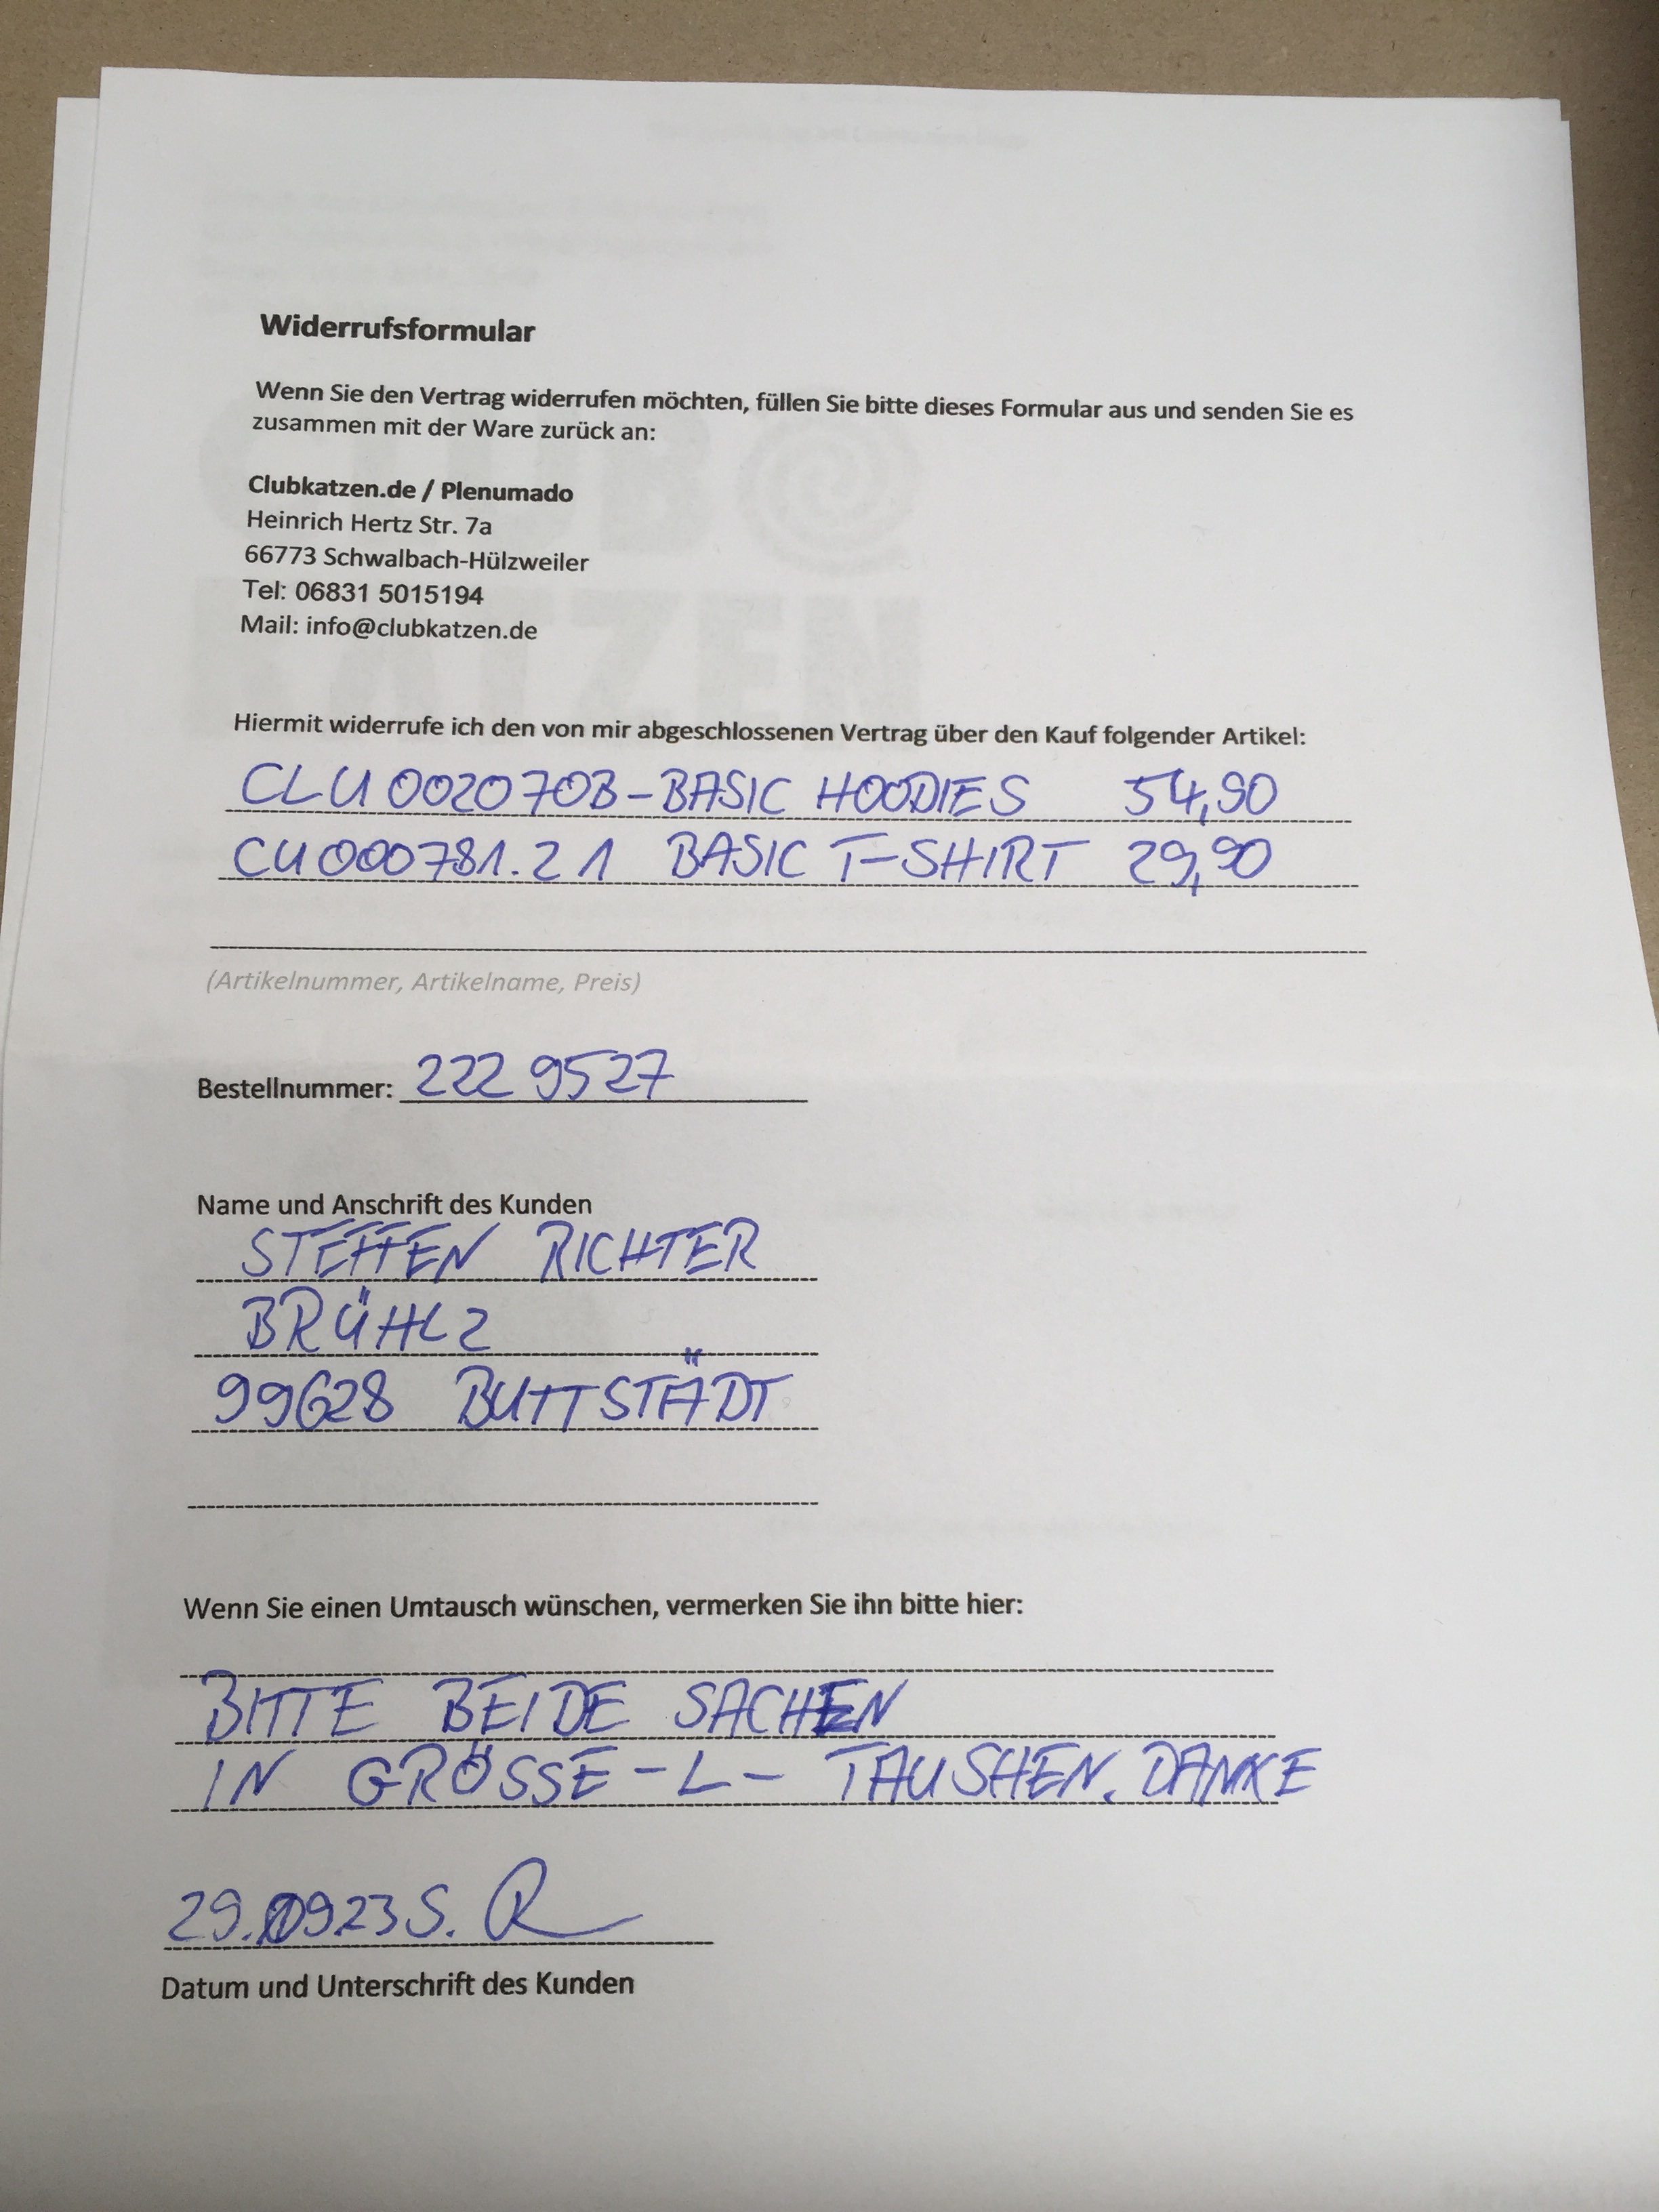 Widerrufsformular
Wenn Sie den Vertrag widerrufen möchten, füllen Sie bitte dieses Formular aus und senden Sie es
zusammen mit der Ware zurück an:
Clubkatzen.de / Plenumado
Heinrich Hertz Str. 7a
66773 Schwalbach-Hülzweiler
Tel: 06831 5015194
Mail: info@clubkatzen.de
Hiermit widerrufe ich den von mir abgeschlossenen Vertrag über den Kauf folgender Artikel:
CLU002070B-BASIC HOODIES 54,90
CU000781.21 BASIC T-SHIRT 29,90
(Artikelnummer, Artikelname, Preis)
Bestellnummer: 222 9527
Name und Anschrift des Kunden
STEFFEN RICHTER
BRÜHL 2
99628 BUTTSTÄDT
Wenn Sie einen Umtausch wünschen, vermerken Sie ihn bitte hier:
BITTE BEIDE SACHEN
IN GRÖSSE -L- TAUSHEN. DANKE
29.09.23 S. R
Datum und Unterschrift des Kunden